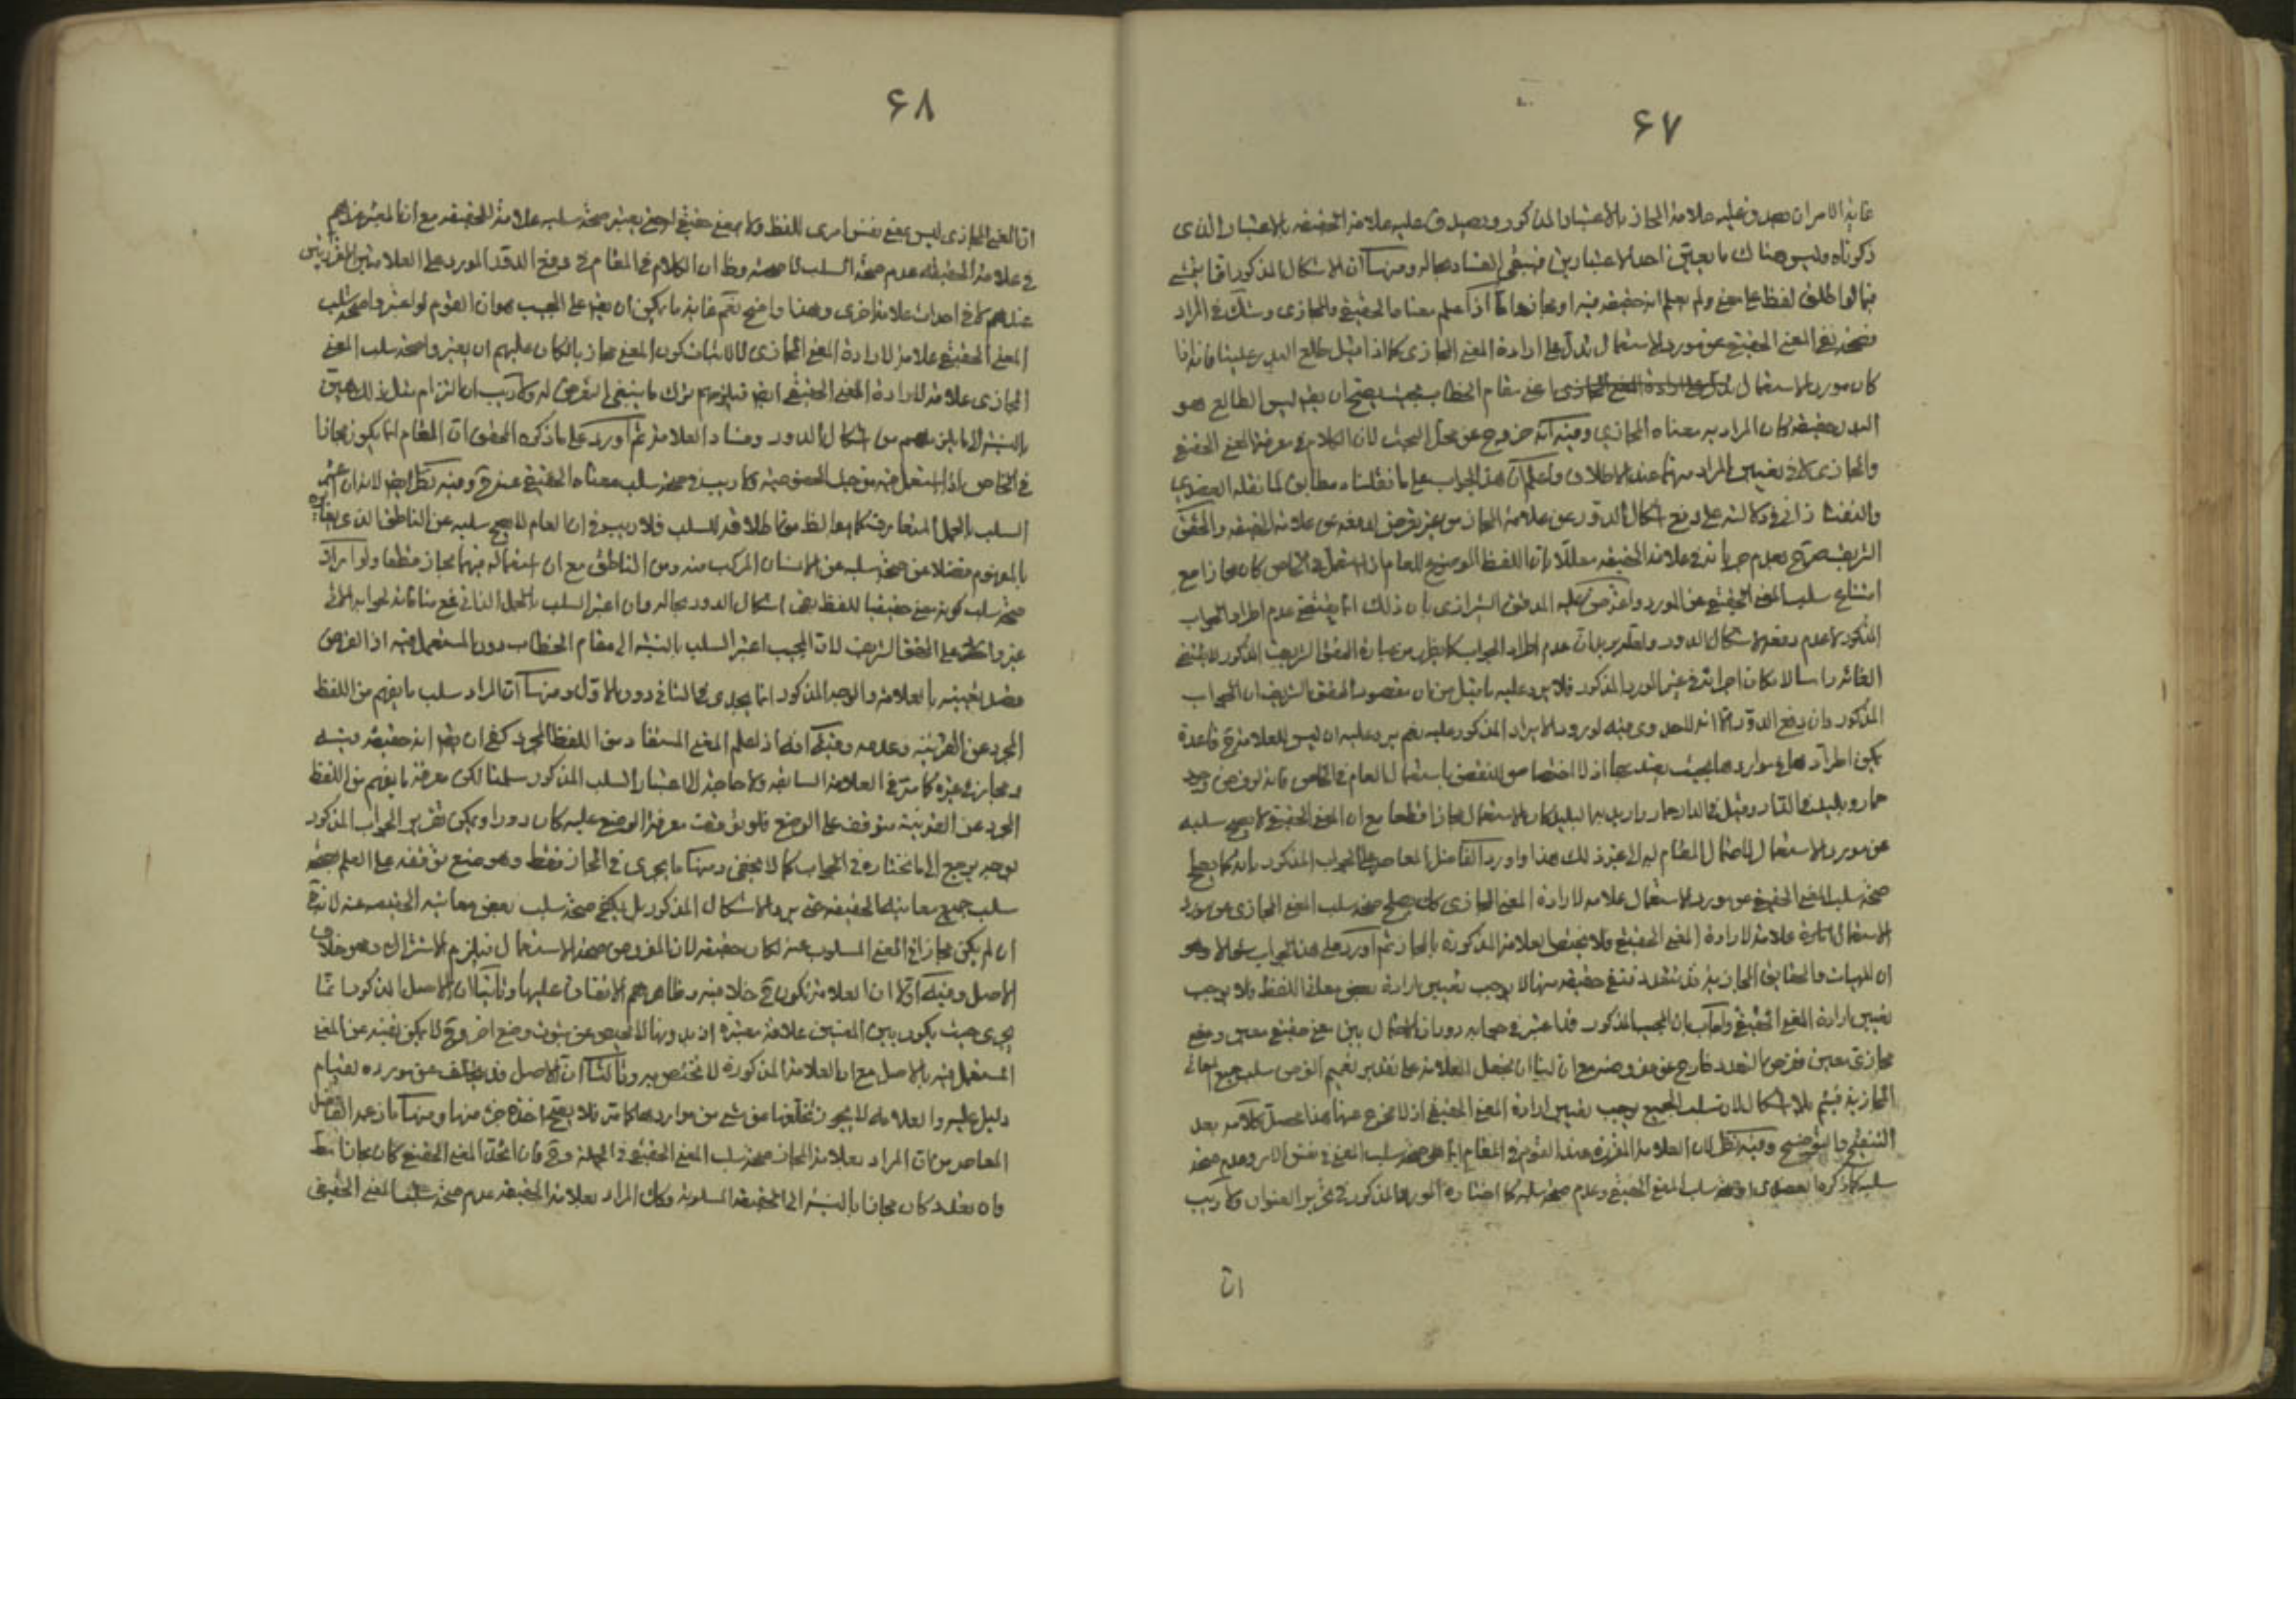 ۶۷
غاية الامر ان يصدق عليه علامة المجاز بالاعتبار المذكور ويصدق عليه علامة الحقيقة بالاعتبار الذى
ذكرناه وليس هناك ما يعيّن احد الاعتبارين فيبقى الفساد بحاله ومنها ان الاشكال المذكور انما يتمشى
فيما لو اطلق لفظ على معنى ولم يعلم انه حقيقة فيه او مجاز واما اذا علم معناه الحقيقي والمجازى وشك فى المراد
فصحة نفى المعنى الحقيقي عن مورد الاستعمال تدل على ارادة المعنى المجازى كما اذا قيل طلع البدر علينا فانه اذا
كان مورد الاستعمال اعنى مقام الخطاب بحيث يصح ان يقال ليس الطالع هو
البدر حقيقة كان المراد به معناه المجازي وفيه انه خروج عن محل البحث لان الكلام فى معرفة المعنى الحقيقي
والمجازى لا فى تعيين المراد منهما عند الاطلاق واعلم ان هذا الجواب على ما نقلناه مطابق لما نقله العضدي
والتفتازانى فى دلالته على دفع اشكال الدور عن علامة المجاز من غير تعرض لدفعه عن علامة الحقيقة والمحقق
الشريف صرح بعدم جريانه فى علامة الحقيقة معللا بان اللفظ الموضوع للعام اذا استعمل فى الخاص كان مجازا مع
امتناع سلب المعنى الحقيقي عن المورد واعترض عليه المدقق الشيرازى بان ذلك انما يقتضى عدم اطراد الجواب
المذكور لا عدم دفعه لاشكال الدور بان عدم اطراد الجواب كما يظهر من عبارة المحقق الشريف المذكور لا يقتضى
الغائه راسا لامكان اجرائه فى غير المورد المذكور فلا يرد عليه ما قيل من ان مقصود المحقق الشريف ان الجواب
المذكور وان دفع الدور الا انه لا جدوى فيه لورود الايراد المذكور عليه نعم يرد عليه ان ليس للعلامة ح قاعدة
يمكن اطرادها فى مواردها بحيث يعتد بها اذ لا اختصاص للنقض باستعمال العام فى الخاص فانه لو فرض وجود
حمار وبليد فى الدار وقيل فى الدار حمار واريد بها البليد كان الاستعمال مجازا قطعا مع ان المعنى الحقيقي لا يصح سلبه
عن مورد الاستعمال المقام له ولغيره ذلك هذا واورد الفاضل المعاصر على الجواب المذكور بانه كما يصلح
صحة سلب المعنى الحقيقي عن مورد الاستعمال علامة لارادة المعنى المجازى كك يصلح صحة سلب المعنى المجازى عن مورد
الاستعمال علامة لارادة المعنى الحقيقي فلا يختص العلامة المذكورة بالمجاز ثم اورد على هذا الجواب وهو
ان المجازية قد تتعدد فنفى حقيقة منها لا يوجب تعيين ارادة بعض معانى اللفظ فلا يوجب
تعيين ارادة المعنى الحقيقي واجاب بان المجيب المذكور قد اعتبر فى جوابه دوران الاستعمال بين معنى حقيقي معين ومعنى
مجازى معين ففرض التعدد خارج عن مفروضه مع ان لنا ان نجعل العلامة على تقدير تعميم الفرض سلب جميع المعانى
المجازية فيتم بلا اشكال لان سلب الجميع يوجب تعيين ارادة المعنى الحقيقي اذ لا مخرج عنها هذا محصل كلامه بعد
التنقيح والتوضيح وفيه نظر لان العلامة المقررة عند القوم فى المقام اما هى صحة سلب المعنى فى نفس الامر وعدم صحة
سلبه كما ذكره العضدى او صحة سلب المعنى الحقيقي وعدم صحة سلبه كما اختاره المورد المذكور فى تحرير العنوان ولا ريب
ان
۶۸
ان المعنى المجازى ليس بمعنى نفس امرى للفظ ولا بمعنى حقيقي له حتى يعتبر صحة سلبه علامة للحقيقة مع ان المعتبر عندهم
فى علامة الحقيقة عدم صحة السلب لا صحته وظ ان الكلام فى المقام فى دفع الدور المورد على العلامتين المقررتين
عندهم لا فى احداث علامة اخرى وهذا واضح نعم غاية ما يمكن ان يقال على المجيب هو ان القوم لو اعتبروا صحة سلب
المعنى الحقيقي علامة لارادة المعنى المجازى لا لاثبات كون المعنى مجازيا لكان عليهم ان يعتبروا صحة سلب المعنى
المجازى علامة لارادة المعنى الحقيقي ايضا فيلزمهم ترك ما ينبغى التعرض له ولا ريب ان التزام مثل ذلك هين
بالنسبة الى ما يلزمهم من اشكال الدور وفساد العلامة ثم اورد على ما ذكره المحقق ان العام انما يكون مجازا
فى الخاص اذا استعمل فيه من حيث الخصوصية ولا ريب فى صحة سلب معناه الحقيقي عنه ح وفيه نظر ايضا لانه ان اعتبر
السلب بالحمل المتعارف كما هو الظ من اطلاقه للسلب فلا ريب فى ان العام لا يصح سلبه عن الناطق الذى يغايره
بالمفهوم فضلا عن صحة سلبه عن الانسان المركب منه ومن الناطق مع ان استعماله فيهما مجاز قطعا ولو اراد
صحة سلب كونه معنى حقيقيا للفظ بقى اشكال الدور بحاله وان اعتبر السلب بالحمل الذاتى فمع منافاته لجوابه الاتى
غير وارد على المحقق الشريف لان المجيب اعتبر السلب بالنسبة الى مقام الخطاب دون المستعمل فيه اذ الغرض
قصد تعيينه بالعلامة والوجه المذكور انما يجدى فى الثانى دون الاول ومنها ان المراد سلب ما يفهم من اللفظ
المجرد عن القرينة وعدمه وفيه انه اذا علم المعنى المستفاد من اللفظ المجرد كفى ان يقال انه حقيقة فيه
ومجاز فى غيره كما مر فى العلامة السابقة ولا حاجة الى اعتبار السلب المذكور سلمنا لكن معرفة ما يفهم من اللفظ
المجرد عن القرينة متوقف على الوضع فلو توقفت معرفة الوضع عليه كان دورا ويمكن تقرير الجواب المذكور
بوجه يرجع الى ما نختاره فى الجواب كما لا يخفى ومنها ما يجرى فى المجاز فقط وهو منع توقفه على العلم بصحة
سلب جميع معانيه الحقيقية حتى يرد الاشكال المذكور بل يكفى صحة سلب بعض معانيه الحقيقية عنه لانه
ان لم يكن مجازا فى المعنى المسلوب عنه لكان حقيقة لان المفروض صحة الاستعمال فيلزم الاشتراك وهو خلاف
الاصل وفيه اولا ان العلامة تكون ح خلافية وظاهرهم الاتفاق عليها وثانيا ان الاصل المذكور انما
يجرى حيث يكون بين المعنيين علاقة معتبرة اذ بدونها لا محيص عن ثبوت وضع اخر وح لا يمكن نفيه عن المعنى
المستعمل فيه بالاصل مع ان العلامة المذكورة لا تختص به وثالثا ان الاصل قد يتخلف عن مورده لقيام
دليل عليه والعلامة لا يجوز تخلفها عن شئ من مواردها كما مر فلا يصح اخذه جزء منها ومنها ما زعمه الفاضل
المعاصر من ان المراد بعلامة المجاز صحة سلب المعنى الحقيقي فى الجملة وح فان اتحد المعنى الحقيقي كان مجازا مط
وان تعدد كان مجازا بالنسبة الى الحقيقة المسلوبة وكك المراد بعلامة الحقيقة عدم صحة سلب المعنى الحقيقي